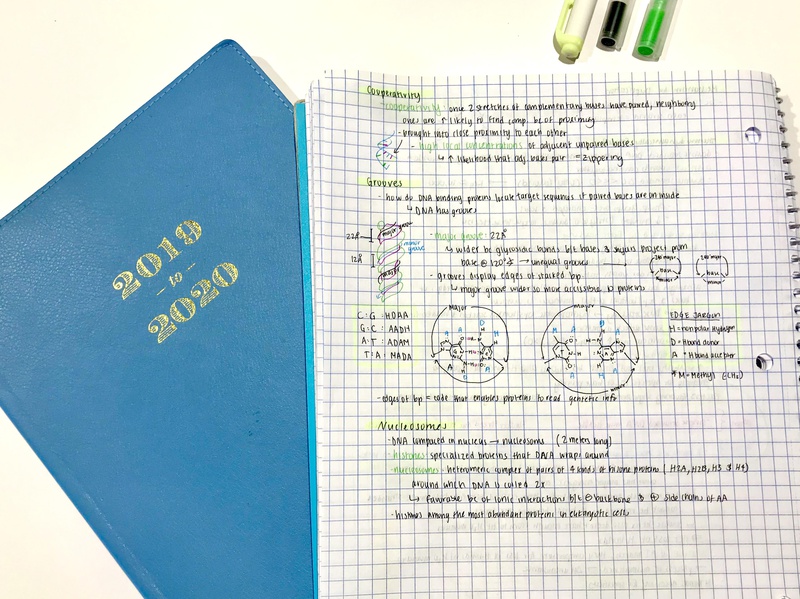 2019
to
2020
Cooperativity
- cooperativity: once 2 stretches of complementary bases have paired, neighboring
ones are ↑ likely to find comp. bc of proximity
- brought into close proximity to each other
- high local concentrations of adjacent unpaired bases
↳ ↑ likelihood that adj. bases pair = zippering
Grooves
- how do DNA binding proteins locate target sequences if paired bases are on inside
↳ DNA has grooves
22Å
major groove
minor groove
12Å
major
- major groove: 22Å
↳ wider bc glycosidic bonds b/t bases & sugars project from
base @ 120° → unequal grooves
- grooves display edges of stacked bp
↳ major groove wider so more accessible to proteins
base
minor
base
minor
C:G :HDAA
G:C : AADH
A:T : ADAM
T:A : MADA
Major
major
minor
EDGE JARGON
H = nonpolar hydrogen
D = H bond donor
A = H bond acceptor
* M = Methyl (-CH₃)
- edges of bp = code that enables proteins to read genetic info
Nucleosomes
- DNA compacted in nucleus → nucleosome (2 meters long)
- histones: specialized proteins that DNA wraps around
- nucleosomes - heteromeric complex of pairs of 4 kinds of histone proteins (H2A, H2B, H3 & H4)
around which DNA is coiled 2x
↳ favorable bc of ionic interactions b/t ⊖ backbone & ⊕ side chains of AA
- histones among the most abundant proteins in eukaryotic cells